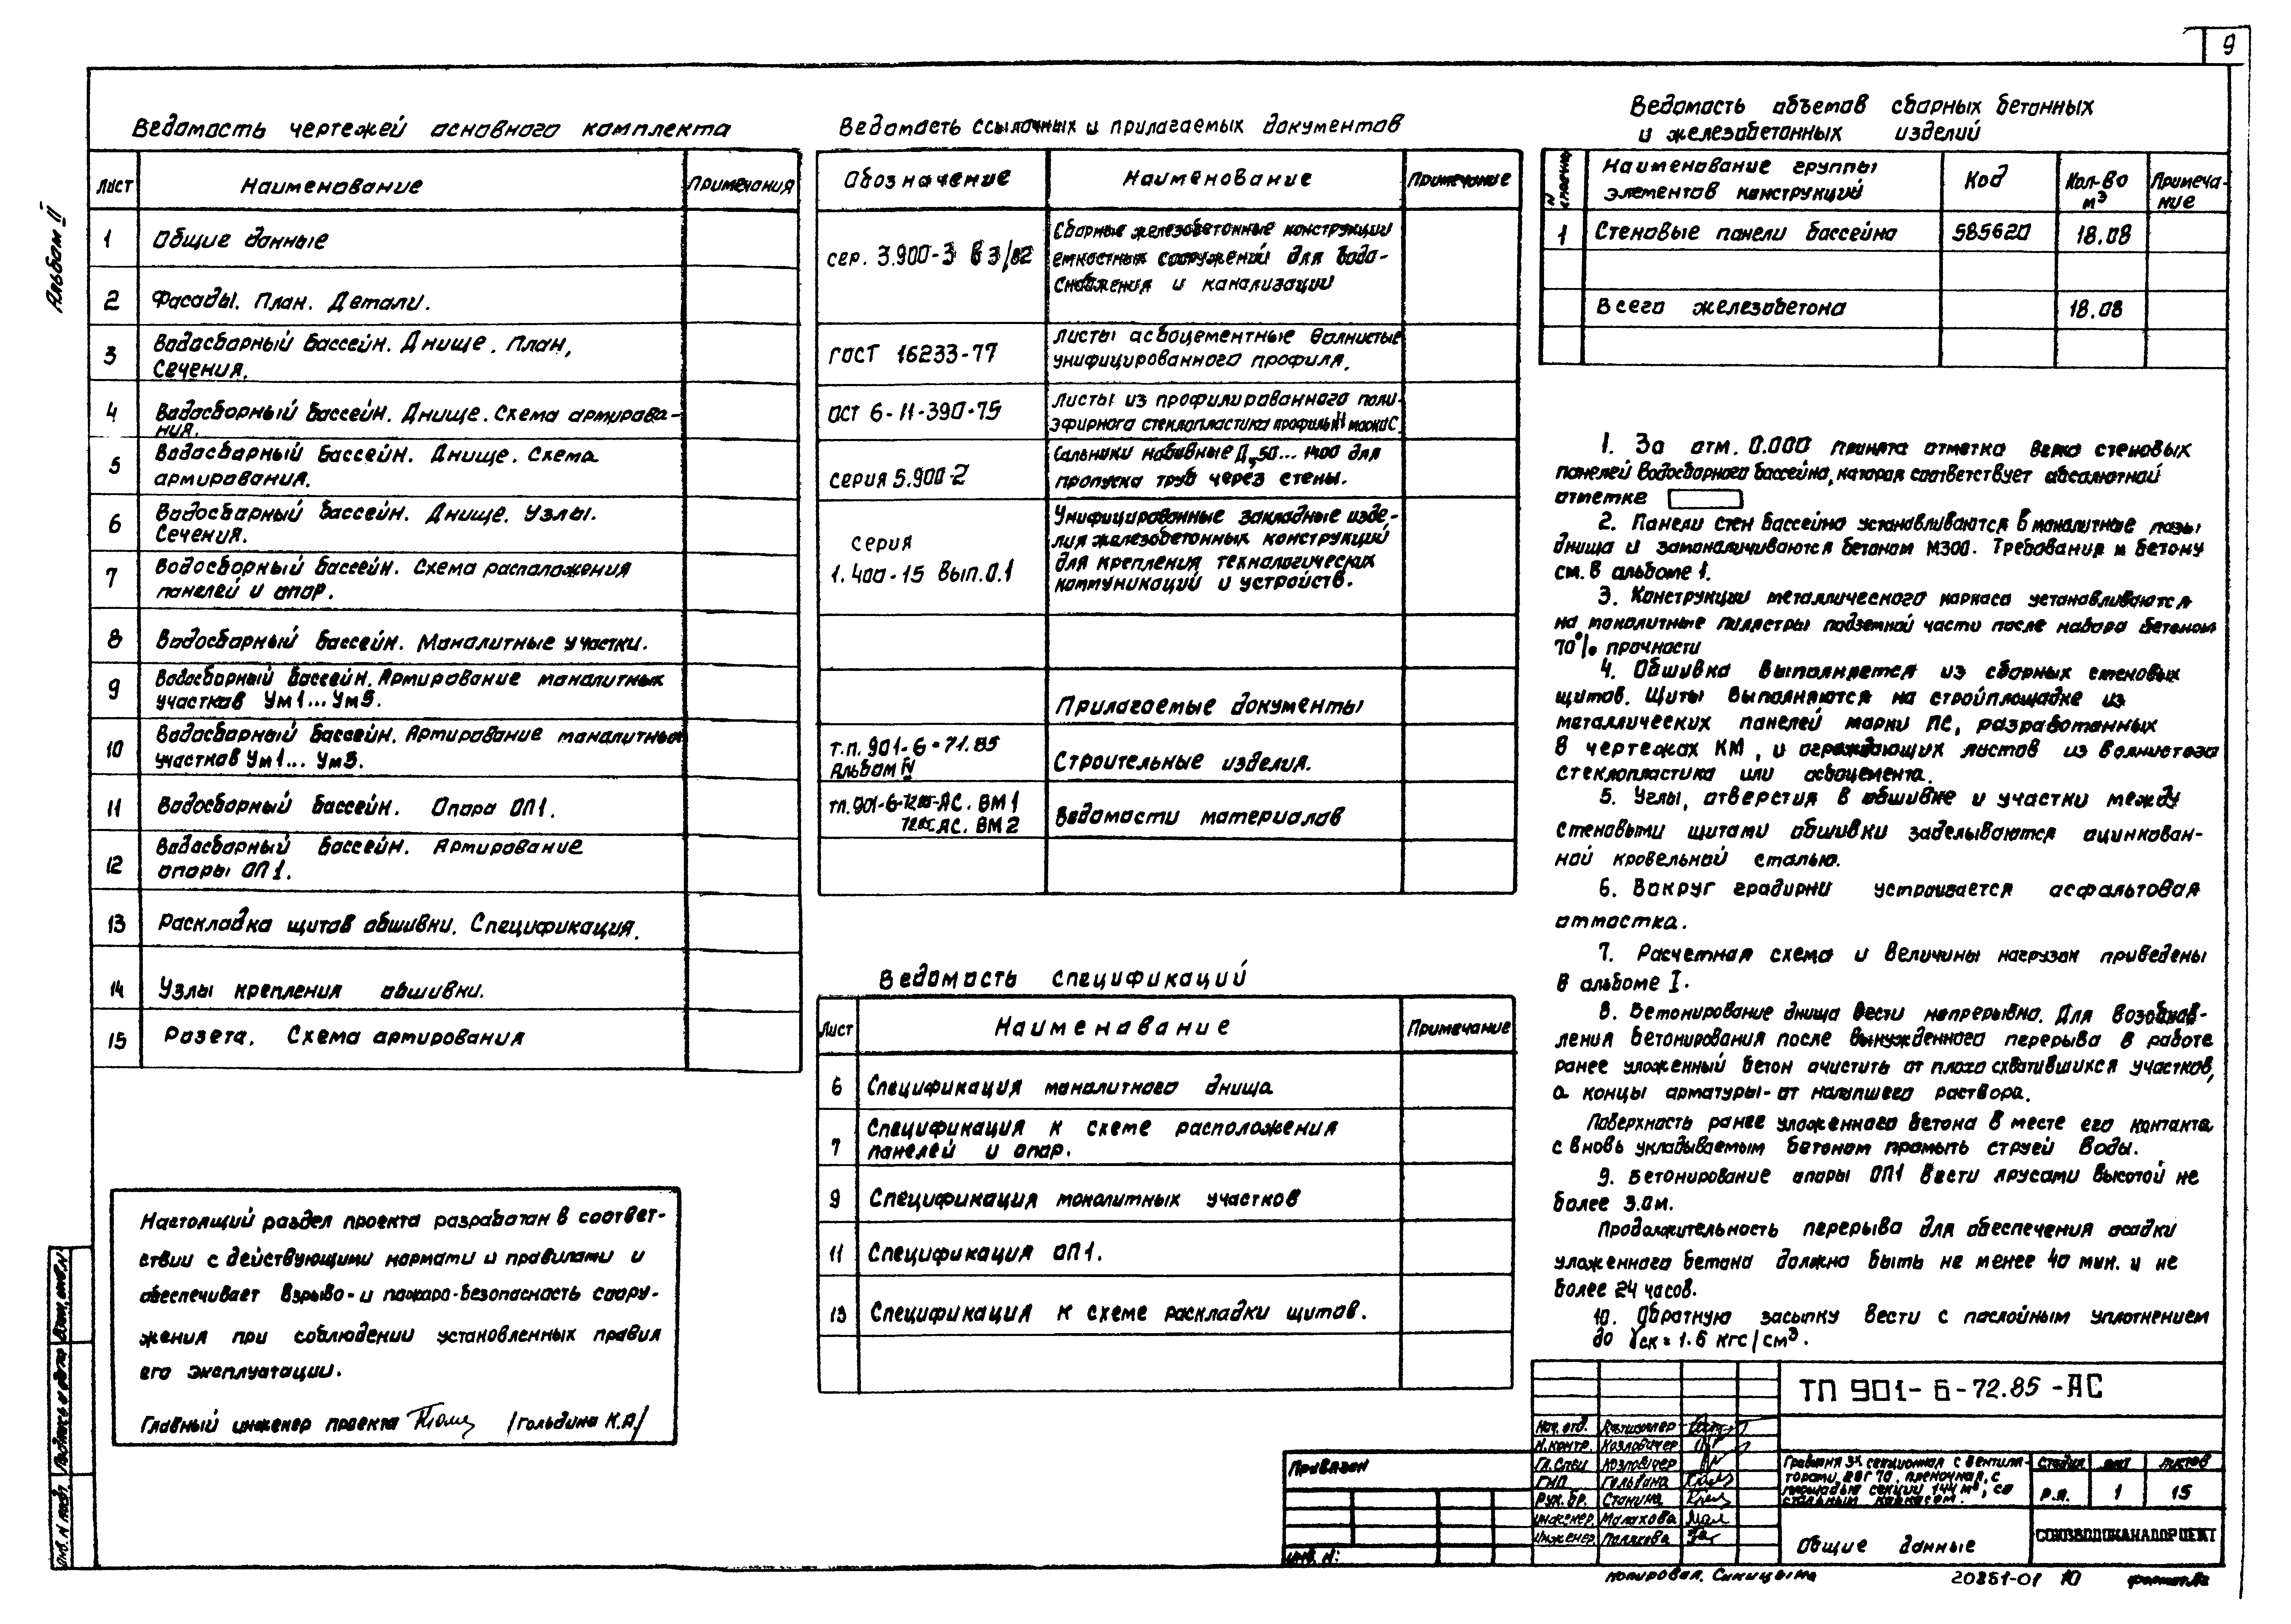 9
Альбом II
Ведомость чертежей основного комплекта
Лист
Наименование
Примечания
1
Общие данные
2
Фасады. План. Детали.
3
Водосборный бассейн. Днище. План,
Сечения.
4
Водосборный бассейн. Днище. Схема армирова-
ния.
5
Водосборный бассейн. Днище. Схема
армирования.
6
Водосборный бассейн. Днище. Узлы.
Сечения.
7
Водосборный бассейн. Схема расположения
панелей и опор.
8
Водосборный бассейн. Монолитные участки.
9
Водосборный бассейн. Армирование монолитных
участков Ум1... Ум5.
10
Водосборный бассейн. Армирование монолитных
участков Ум1... Ум5.
11
Водосборный бассейн. Опора ОП1.
12
Водосборный бассейн. Армирование
опоры ОП1.
13
Раскладка щитов обшивки. Спецификация.
14
Узлы крепления обшивки.
15
Розета. Схема армирования
Настоящий раздел проекта разработан в соответ-
ствии с действующими нормами и правилами и
обеспечивает взрыво- и пожаро-безопасность соору-
жения при соблюдении установленных правил
его эксплуатации.
Главный инженер проекта /Гольдина К.А/
Ведомость ссылочных и прилагаемых документов
Обозначение
Наименование
Примечание
сер. 3.900-3 в 3/82
Сборные железобетонные конструкции
емкостных сооружений для водо-
снабжения и канализации
ГОСТ 16233-77
Листы асбоцементные волнистые
унифицированного профиля.
ОСТ 6-11-390-75
Листы из профилированного поли-
эфирного стеклопластика профиль марки С
серия 5.900-2
Сальники набивные Ду50... 1400 для
пропуска труб через стены.
серия
1.400-15 вып.0.1
Унифицированные закладные изде-
лия железобетонных конструкций
для крепления технологических
коммуникаций и устройств.
Прилагаемые документы
т.п. 901-6-71.85
Альбом IV
Строительные изделия.
тп.901-6-72.85-АС. ВМ1
72.85.АС. ВМ2
Ведомости материалов
Ведомость спецификаций
Лист
Наименование
Примечание
6
Спецификация монолитного днища
7
Спецификация к схеме расположения
панелей и опор.
9
Спецификация монолитных участков
11
Спецификация ОП1.
13
Спецификация к схеме раскладки щитов.
Ведомость объемов сборных бетонных
и железобетонных изделий
N
Наименование группы
элементов конструкций
Код
Кол-во
м3
Примеча-
ние
1
Стеновые панели бассейна
585620
18.08
Всего железобетона
18.08
1. За отм. 0.000 принята отметка верха стеновых
панелей водосборного бассейна, которая соответствует абсолютной
отметке
2. Панели стен бассейна устанавливаются в монолитные пазы
днища и замоноличиваются бетоном М300. Требования к бетону
см. в альбоме 1.
3. Конструкции металлического каркаса устанавливаются
на монолитные пилястры подземной части после набора бетоном
70% прочности
4. Обшивка выполняется из сборных стеновых
щитов. Щиты выполняются на стройплощадке из
металлических панелей марки ПС, разработанных
в чертежах КМ, и ограждающих листов из волнистого
стеклопластика или асбоцемента.
5. Углы, отверстия в обшивке и участки между
стеновыми щитами обшивки заделываются оцинкован-
ной кровельной сталью.
6. Вокруг градирни устраивается асфальтовая
отмостка.
7. Расчетная схема и величины нагрузок приведены
в альбоме I.
8. Бетонирование днища вести непрерывно. Для возобнов-
ления бетонирования после вынужденного перерыва в работе
ранее уложенный бетон очистить от плохо схватившихся участков,
а концы арматуры - от налипшего раствора.
Поверхность ранее уложенного бетона в месте его контакта
с вновь укладываемым бетоном промыть струей воды.
9. Бетонирование опоры ОП1 вести ярусами высотой не
более 3.0м.
Продолжительность перерыва для обеспечения осадки
уложенного бетона должна быть не менее 40 мин. и не
более 24 часов.
10. Обратную засыпку вести с послойным уплотнением
до γск = 1.6 кгс/см3.
ТП 901-6-72.85 -АС
Нач. отд.
Н.контр. Козловичер
Гл.спец Козловичер
ГИП Гольдина
Рук. бр. Станина
инженер. Малахова
инженер Полякова
Привязан
инв. N:
Градирня 3х секционная с вентиля-
торами 2ВГ 70, пленочная, с
площадью секции 144 м2, со
стальным каркасом.
Стадия
лист
листов
Р.П.
1
15
Общие данные
СОЮЗВОДОКАНАЛПРОЕКТ
Инв. N подл.
Подпись и дата
Взам. инв. N
копировал. Синицына
20851-01 10
формат А2